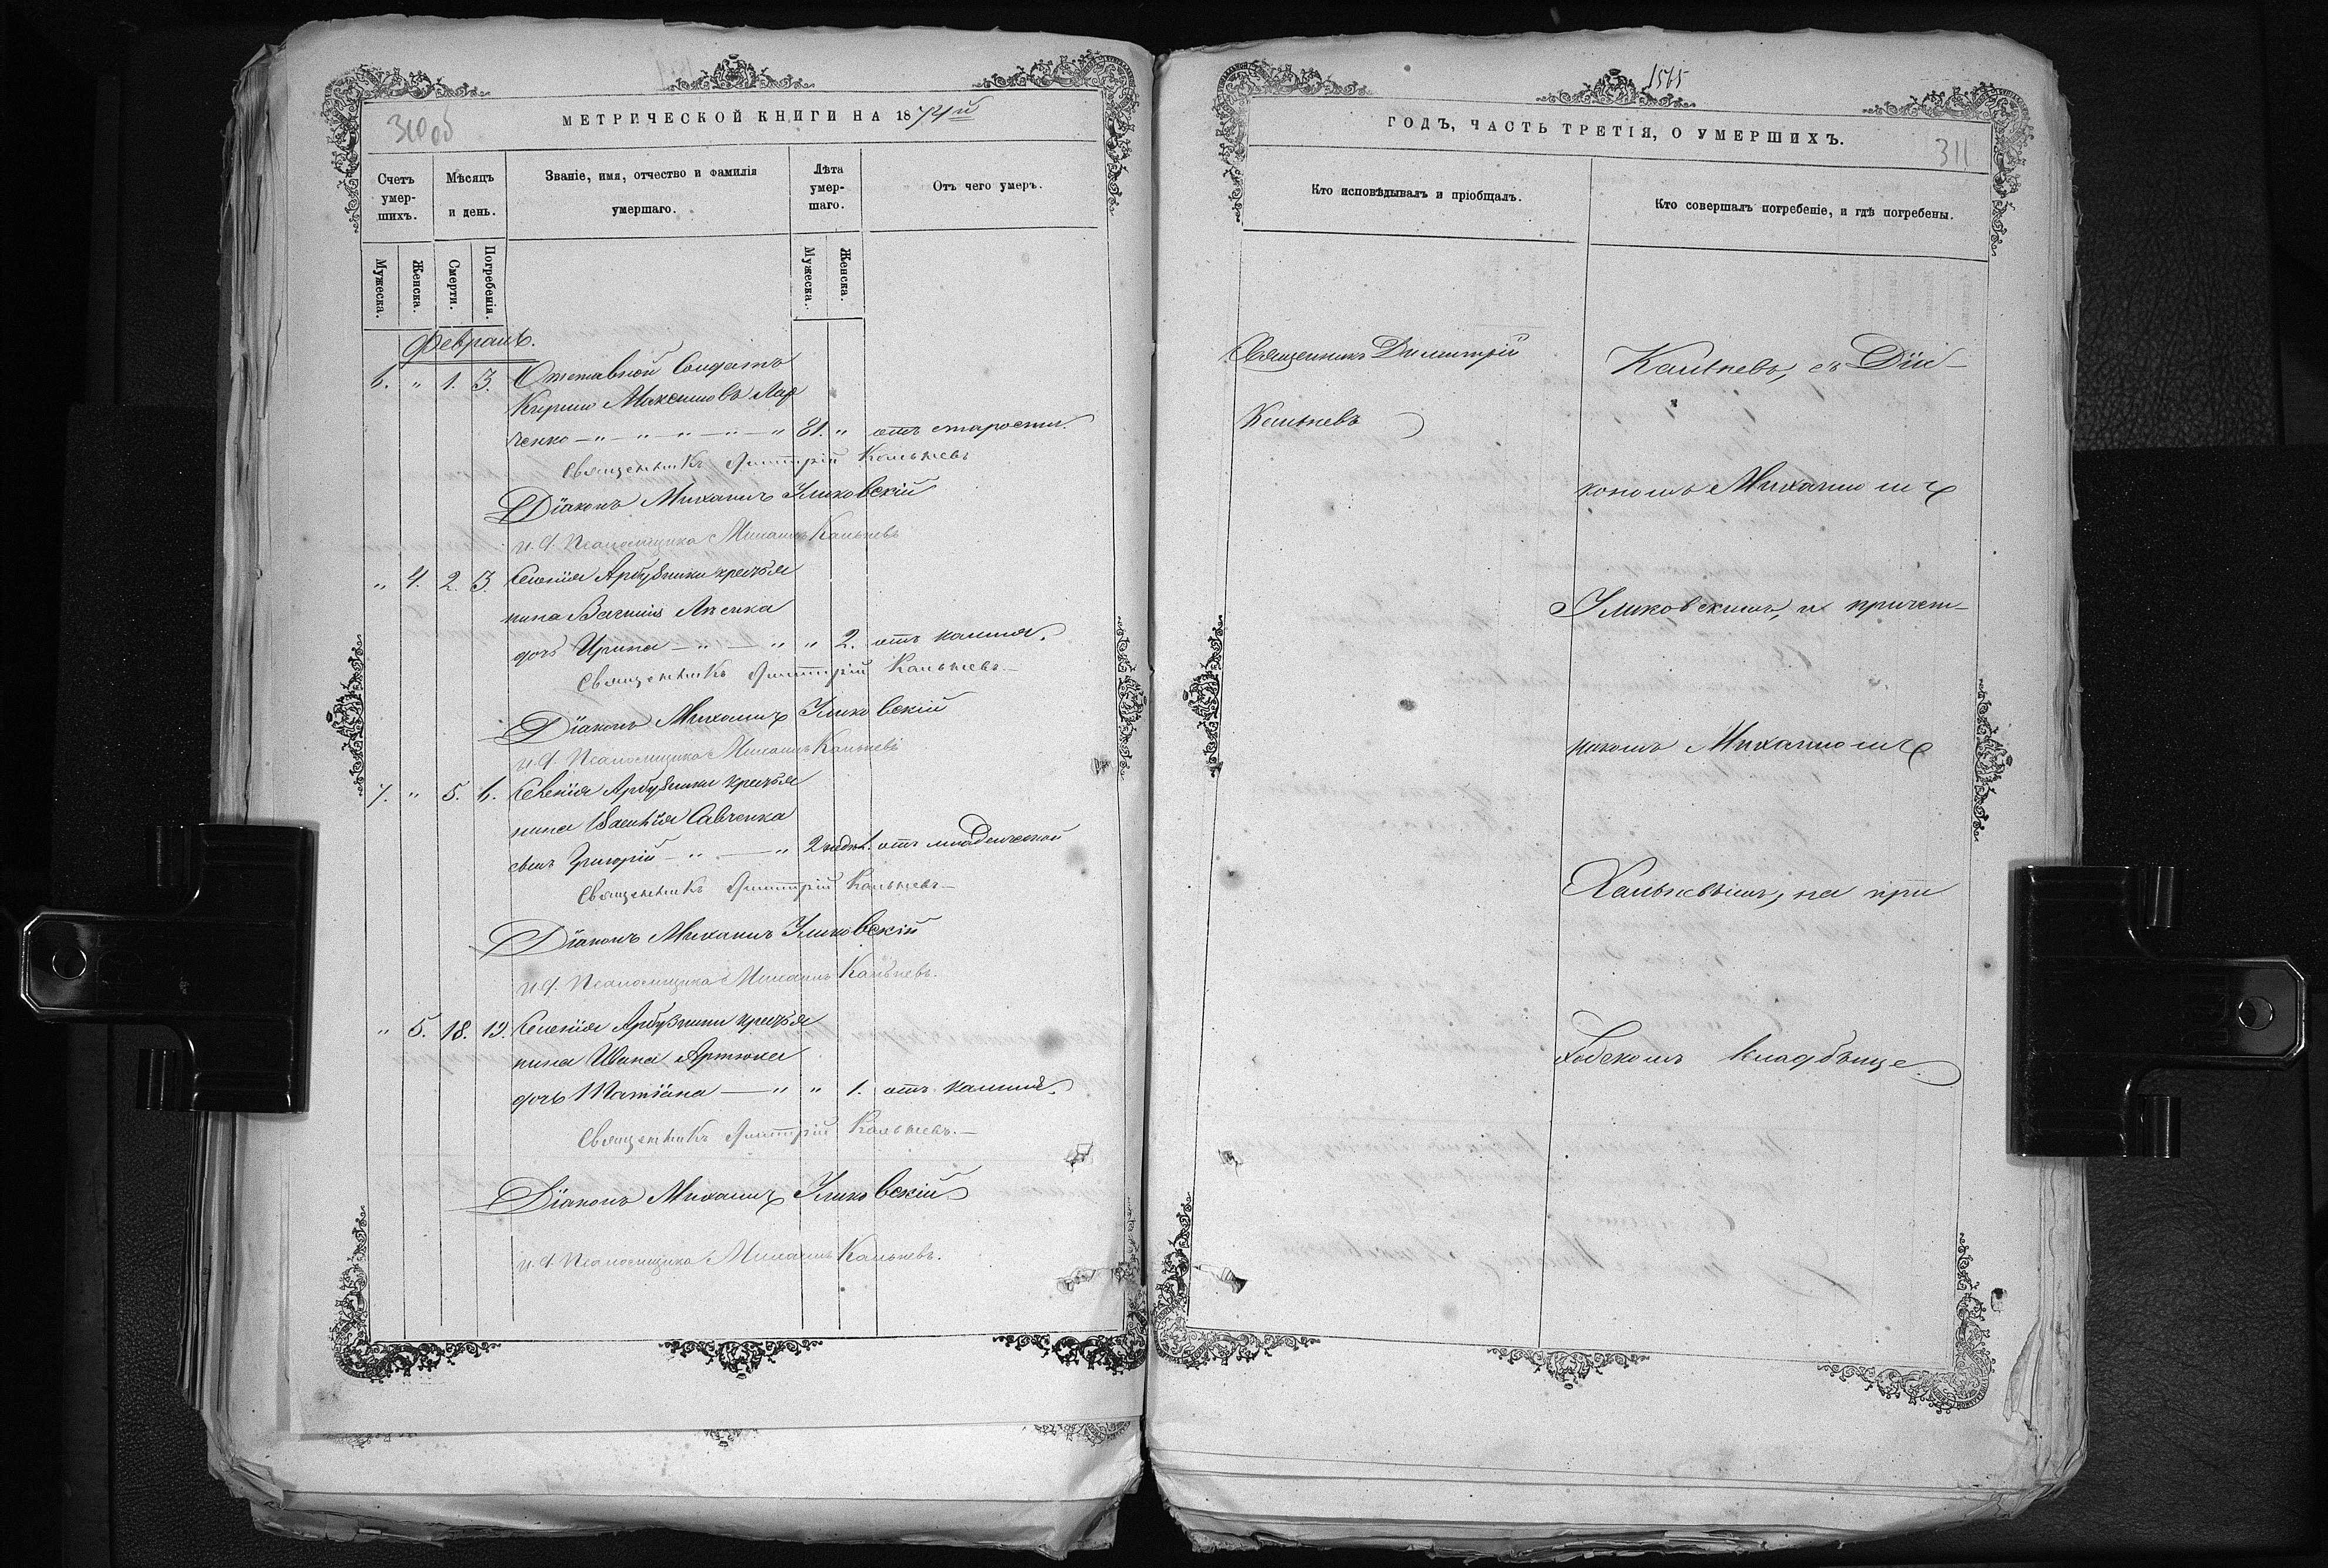 310 об
МЕТРИЧЕСКОЙ КНИГИ НА 1874й
Счетъ умер-шихъ.
Мѣсяцъ и день.
Званіе, имя, отчество и фамилія умершаго.
Лѣта умер-шаго.
Отъ чего умеръ.
Мужеска.
Женска.
Смерти.
Погребенія.
Мужеска.
Женска.
Февраль.
6. " 1. 3. Отставной Солдатъ
Кирило Максимовъ
ченко — " — " — " — " — " 81. " отъ старости.
Священникъ Димитрій Кальневъ
Діаконъ Михаилъ Уликовскій
и. д. Псаломщика Михаилъ Кальневъ
" 4. 2. 3. Селенія Арбузинки крестья
нина
дочь Ирина — " — " " 2. отъ кашля.
Священникъ Димитрій Кальневъ —
Діаконъ Михаилъ Уликовскій
и. д. Псаломщика Михаилъ Кальневъ
7. " 5. 6. Селенія Арбузинки крестья
нина Савченка
сынъ Григорій — " — " 2 недѣл. отъ младенческой
Священникъ Димитрій Кальневъ —
Діаконъ Михаилъ Уликовскій
и. д. Псаломщика Михаилъ Кальневъ.
" 5. 18. 19. Селенія Арбузинки крестья
нина Ивана Артюха
дочь Татіана — " " 1. отъ кашля.
Священникъ Димитрій Кальневъ. —
Діаконъ Михаилъ Уликовскій
и. д. Псаломщика Михаилъ Кальневъ.
1515
ГОДЪ, ЧАСТЬ ТРЕТІЯ, О УМЕРШИХЪ.
311
Кто исповѣдывалъ и пріобщалъ.
Кто совершалъ погребеніе, и гдѣ погребены.
Священникъ Димитрій
Кальневъ
Кальневъ, съ Діа-
кономъ Михаиломъ
Уликовскимъ, и причет-
никомъ Михаиломъ
Кальневымъ, на при
ходскомъ кладбище.